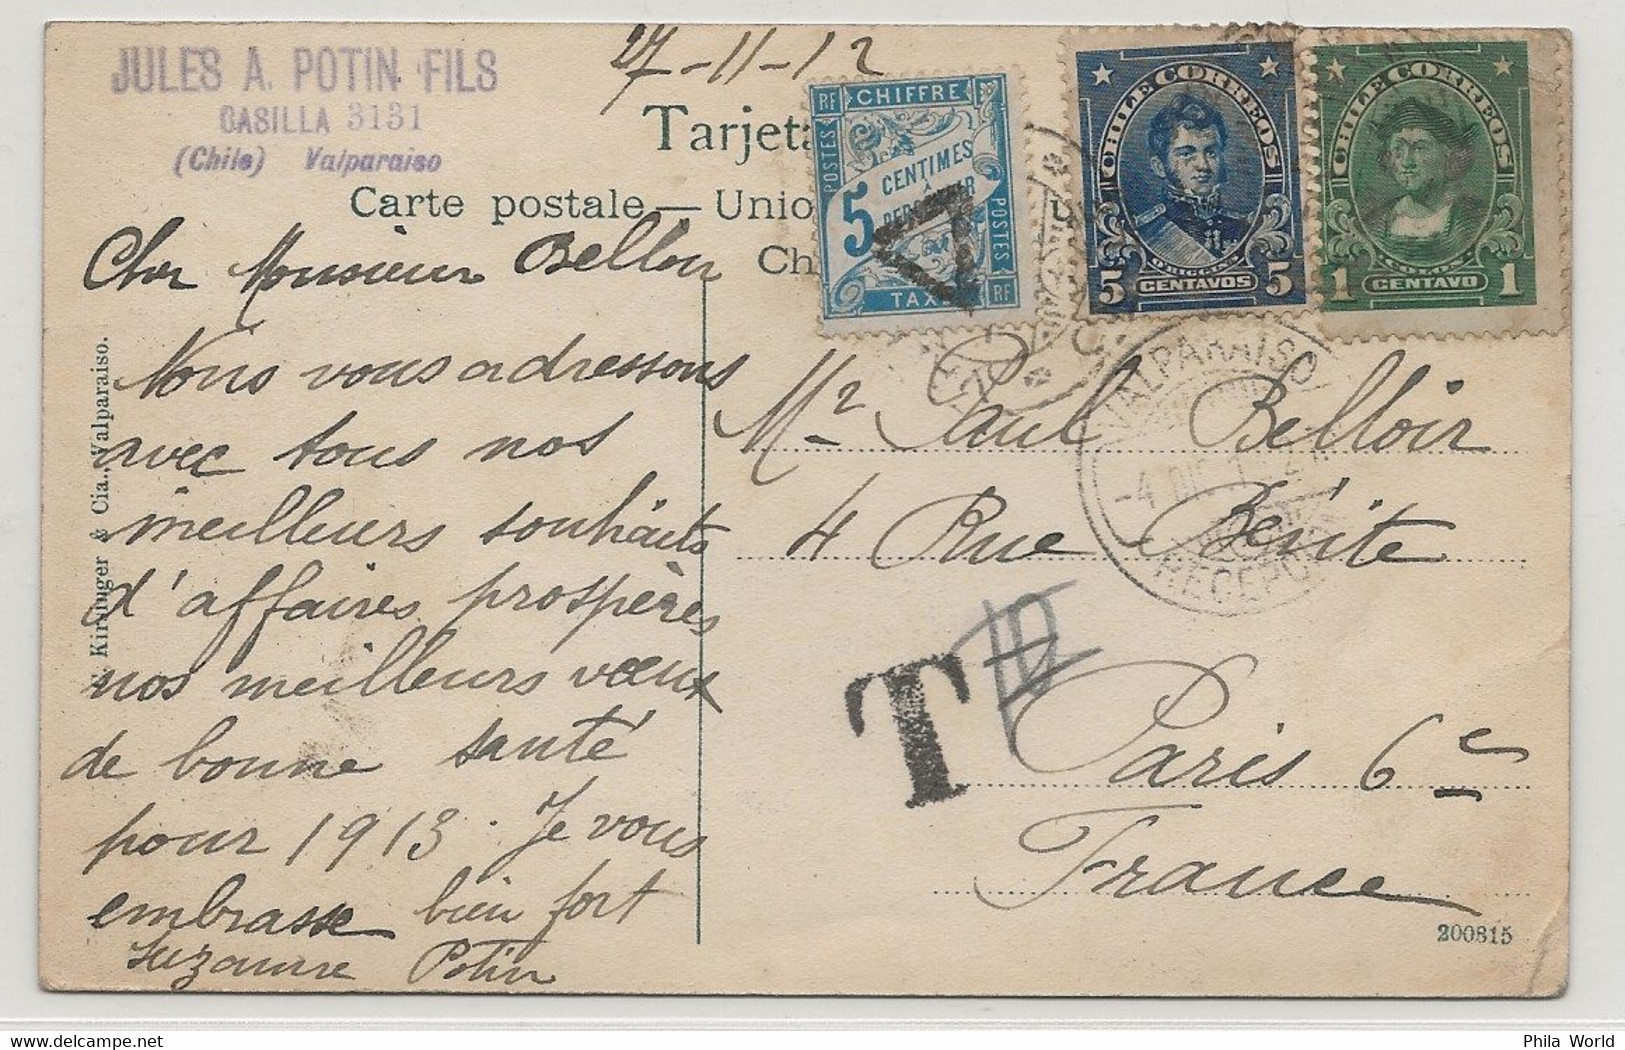 JULES A. POTIN FILS
CASILLA 3131
(Chile) Valparaiso
27-11-12
Tarjeta
Carte postale — Unio
Ch
RF CHIFFRE
POSTES
5 CENTIMES
A
PERCEVOIR
POSTES
TAXE RF
CHILE CORREOS
O'HIGGINS
5 CENTAVOS 5
CHILE CORREOS
COLON
1 CENTAVO 1
VALPARAISO
-4 DIC 12
RECEPC
Cher Monsieur Belloir
Nous vous adressons
avec tous nos
meilleurs souhaits
d'affaires prospères
nos meilleurs vœux
de bonne santé
pour 1913. Je vous
embrasse bien fort
Suzanne Potin
Mr Paul Belloir
4 Rue Bérite
Paris 6e
France
T 10
Kirsinger & Cia., Valparaiso.
200815
Phila World